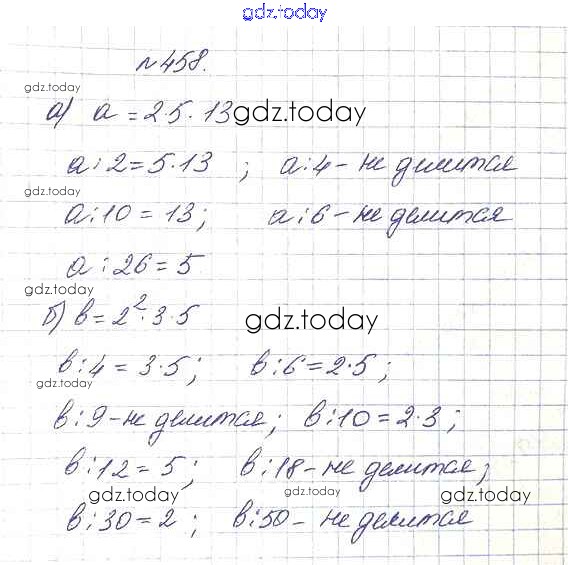 gdz.today
№458.
gdz.today
а) a = 2·5·13 gdz.today
a:2=5·13 ; a:4 - не делится
gdz.today
a:10 = 13; a:6 - не делится
a:26=5
gdz.today
б) b=2²·3·5 gdz.today
b:4 = 3·5; b:6=2·5;
gdz.today
b:9 - не делится; b:10=2·3;
b:12=5; b:18 - не делится;
gdz.today gdz.today gdz.today
b:30=2; b:50 - не делится